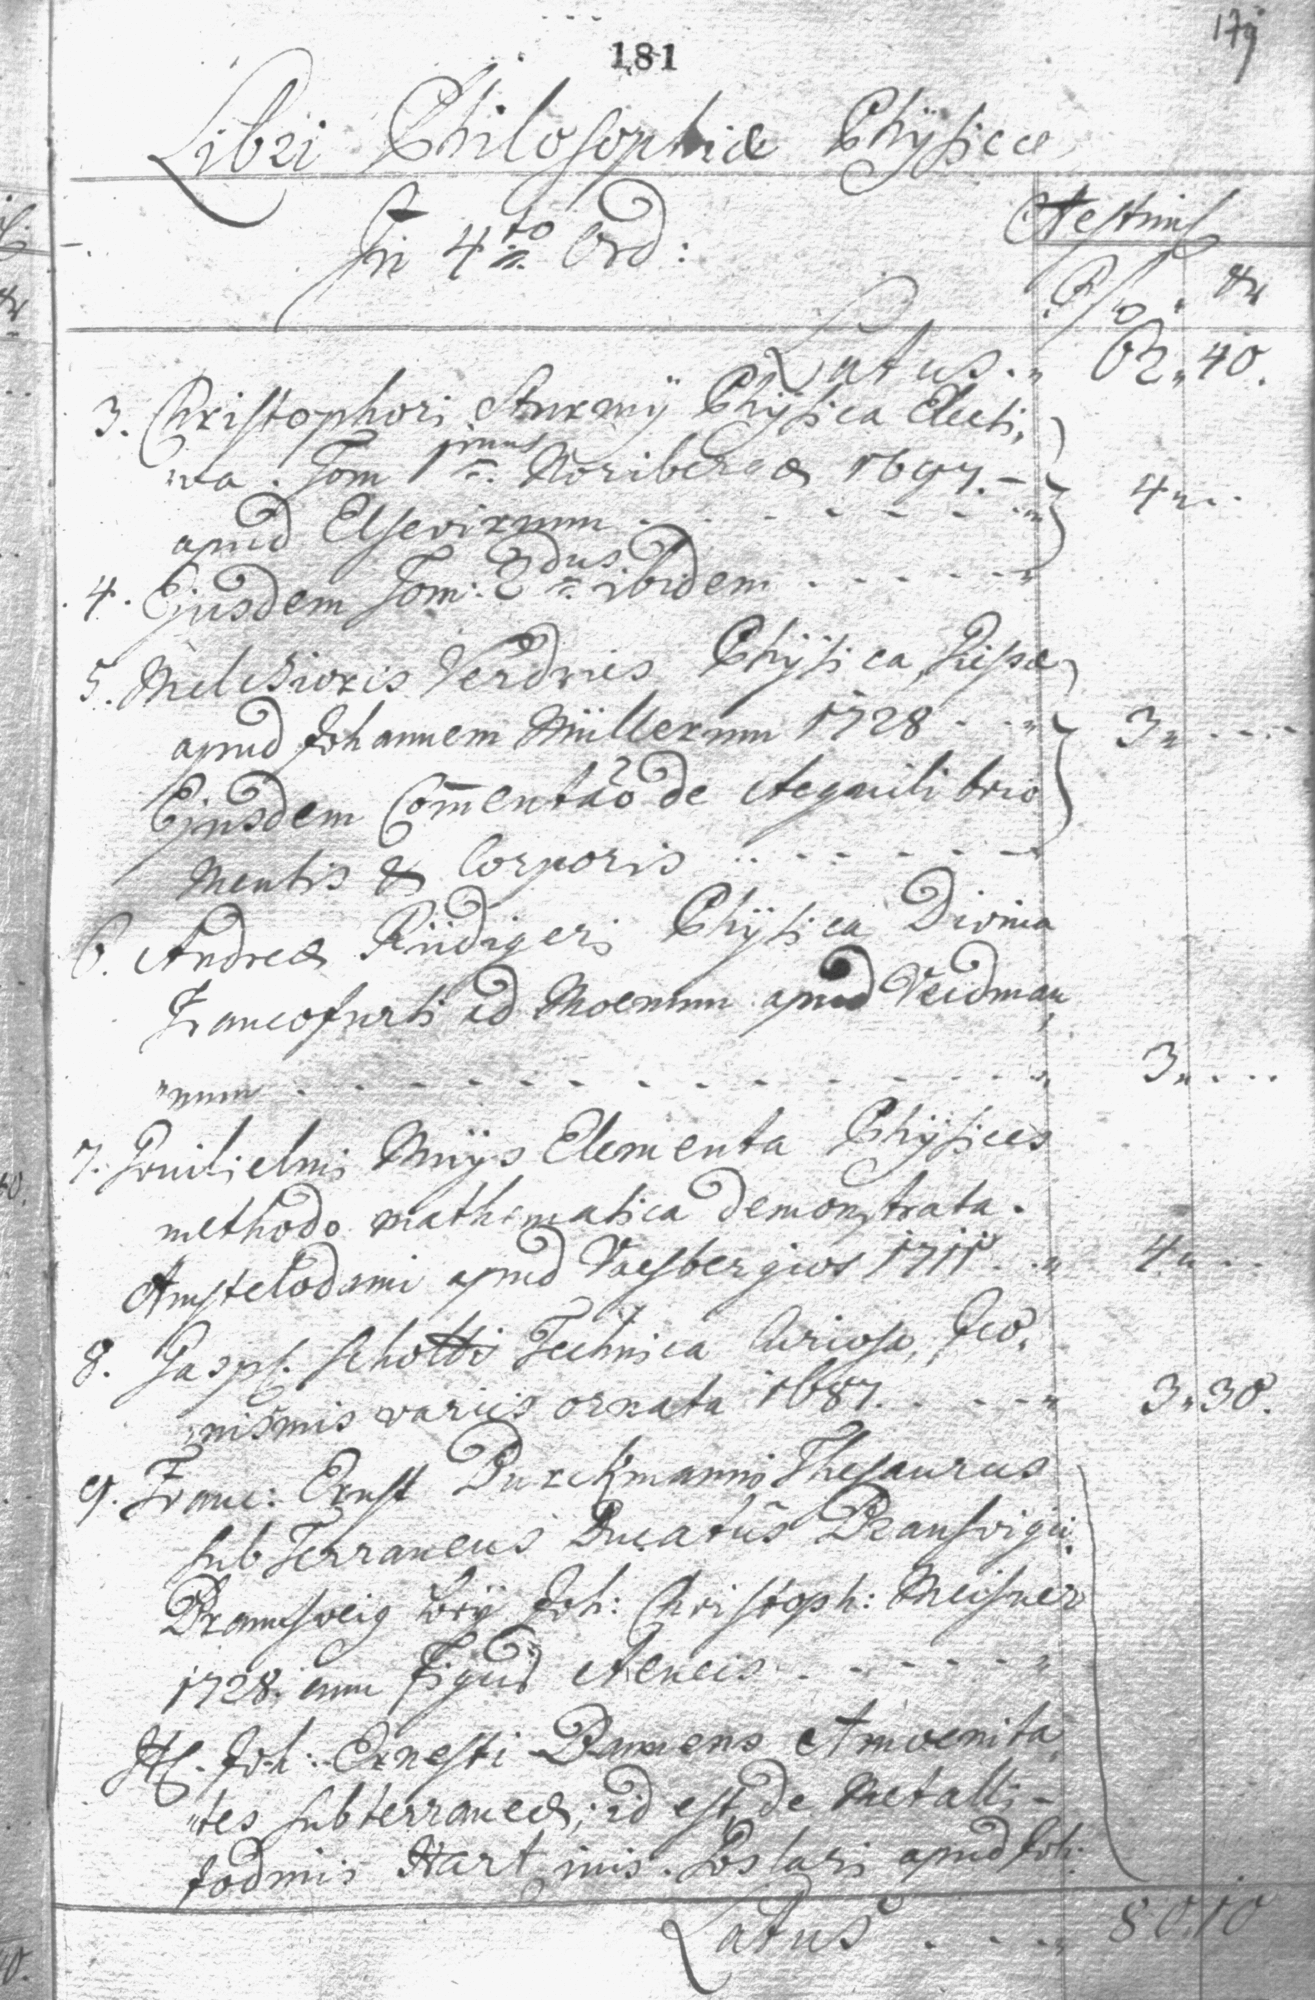 179
181
Libri Philosophiæ Phÿsicæ
In 4to Ord:
Aestim
Rfl. xr
Latus. „ 62„ 40.
3. Christophori Sturmÿ Phÿsica Electi,
„va. Tom 1mus Noribergæ 1697. –
apud Elsevirum . . - - - - „ 4„ . .
4. Ejusdem Tom: 2dus ibidem . - - - - „
5. Melchioris Verdries Phÿsica, Gissæ,
apud Johannem Müllerum 1728 - - „ 3„ - - - -
Ejusdem Com̄então de Aequilibrio
Mentis & Corporis .. - - - - -
6. Andreæ Rüdigeri Phÿsica Divina
Francofurti ad Moenum apud Veidman,
„num . - - - - - - - - - - - „ 3„ . . .
7. Guilielmi Muÿs Elementa Phÿsices
methodo mathematica demonstrata.
Amstelodami apud Vaesbergios 1711. . „ 4„ - . .
8. Gasp. Schotti Technica Curiosa, Ico,
„nismis variis ornata 1687. . - - - „ 3„ 30.
9. Franc: Ernst Burckmanni Thesaurus
subTerraneus Ducatûs Braunsvigii.
Braunsveig beÿ Joh: Christoph: Meisner
1728. cum Figuris Aeneis . - - - - „
It. Joh: Ernesti Bamens Amoenita,
„tes subterraneæ; id est, de Metalli-
fodinis Hartinis. Goslari apud Joh:
Latus . - - „ 80„ 10